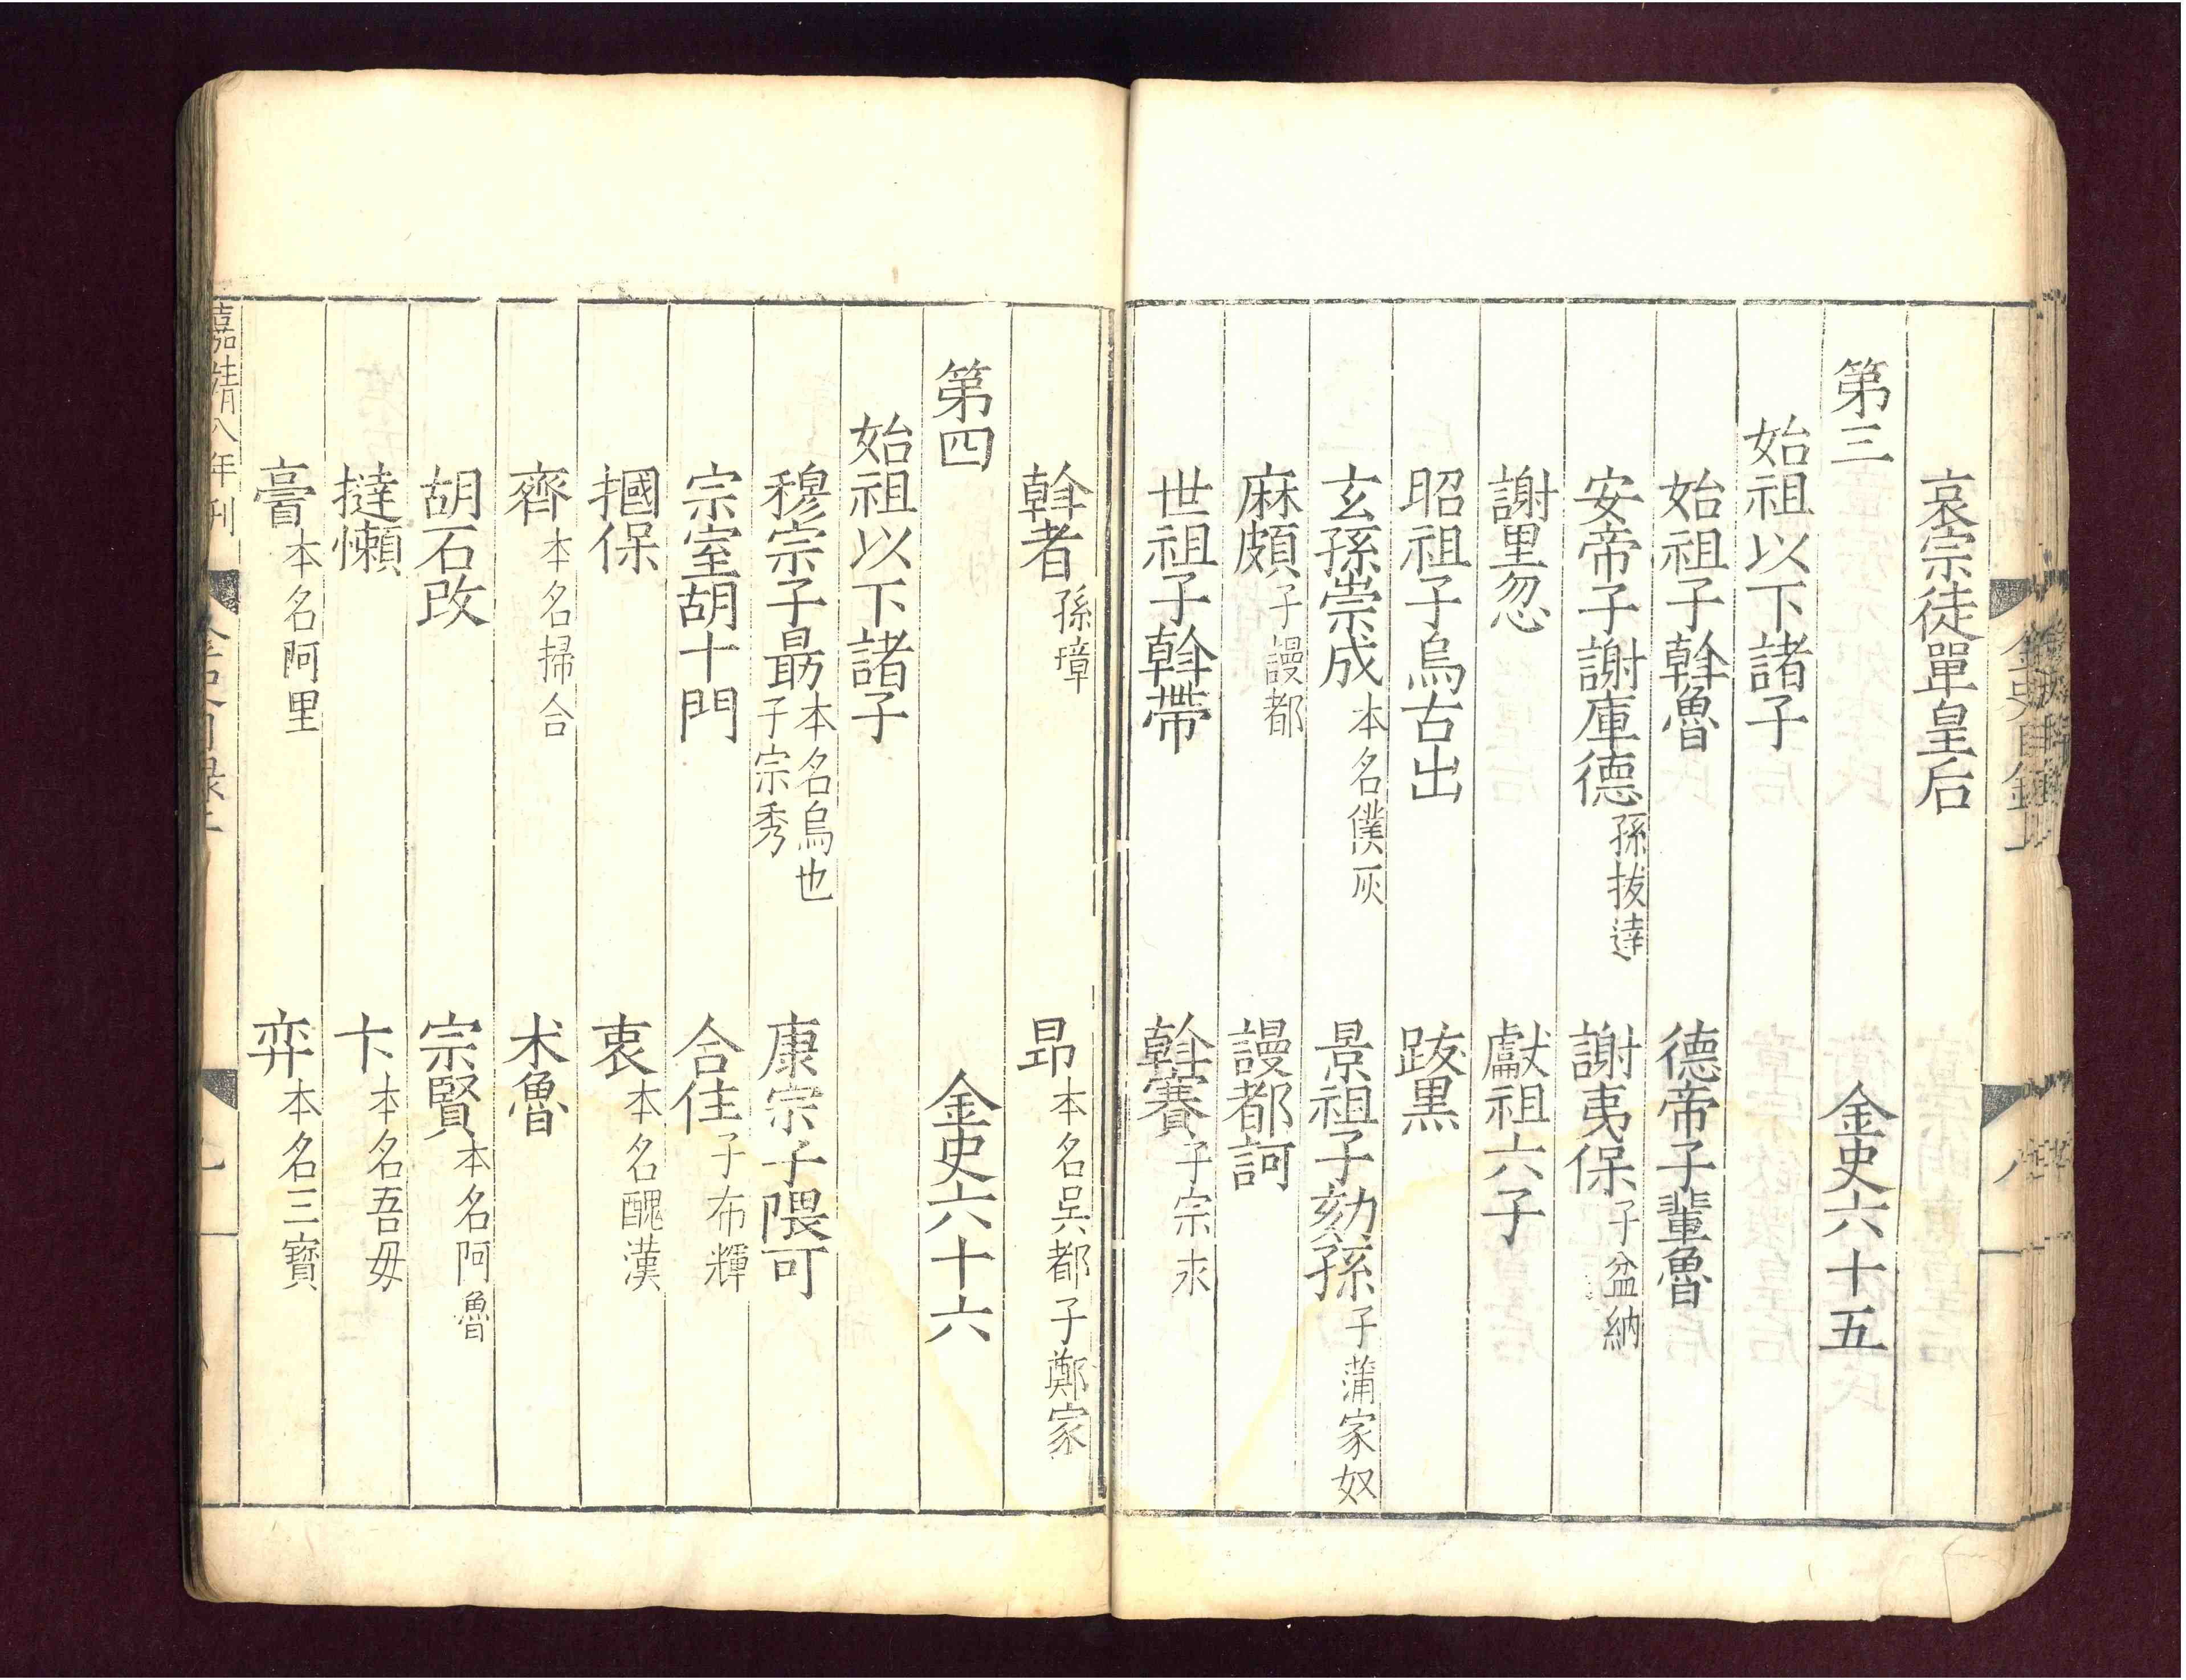 哀宗徒單皇后
第三 金史六十五
始祖以下諸子
始祖子斡魯 德帝子輩魯
安帝子謝庫德孫拔達 謝夷保子盆納
謝里忽 獻祖六子
昭祖子烏古出 跋黑
玄孫崇成本名僕灰 景祖子劾孫子蒲家奴
麻頗子謾都 謾都訶
世祖子斡帶 斡賽子宗永
斡者孫璋 昂本名吳都子鄭家
第四 金史六十六
始祖以下諸子
穆宗子勗本名烏也子宗秀 康宗子隈可
宗室胡十門 合住子布輝
摑保 衷本名醜漢
齊本名掃合 术魯
胡石改 宗賢本名阿魯
撻懶 卞本名吾毋
膏本名阿里 弈本名三寶
嘉靖八年刊